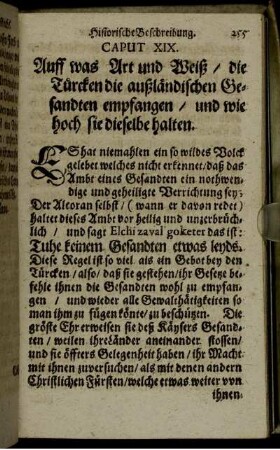 Historische Beschreibung. 255
CAPUT XIX.
Auff was Art und Weiß / die
Türcken die außländischen Ge-
sandten empfangen / und wie
hoch sie dieselbe halten.
ES hat niemahlen ein so wildes Volck
gelebet welches nicht erkennet / daß das
Ambt eines Gesandten ein nothwen-
dige und geheiligte Verrichtung sey.
Der Alcoran selbst / (wann er davon redet)
haltet dieses Ambt vor heilig und unzerbrüch-
lich / und sagt Elchi zaval goketer das ist:
Tuhe keinem Gesandten etwas leyds.
Diese Regel ist so viel als ein Gebot bey den
Türcken / also / daß sie gestehen / ihr Gesetze be-
fehle ihnen die Gesandten wohl zu empfan-
gen / und wieder alle Gewalthätigkeiten so
man ihm zu fügen könte / zu beschützen. Die
gröste Ehr erweisen sie deß Käysers Gesand-
ten / weilen ihre Länder aneinander stossen /
und sie öffters Gelegenheit haben / ihr Macht
mit ihnen zuversuchen / als mit denen andern
Christlichen Fürsten / welche etwas weiter von
ihnen